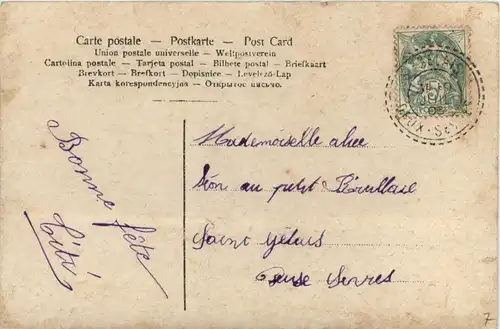 Carte postale — Postkarte — Post Card
Union postale universelle — Weltpostverein
Cartolina postale — Tarjeta postal — Bilhete postal — Briefkaart
Brevkort — Brefkort — Dopisnice — Levelező-Lap
Karta korespondencyjna — Открытое письмо.
Bonne fête
Titi
Mademoiselle alice
Léon au petit
Saint Gelais
Deux Sevres
7